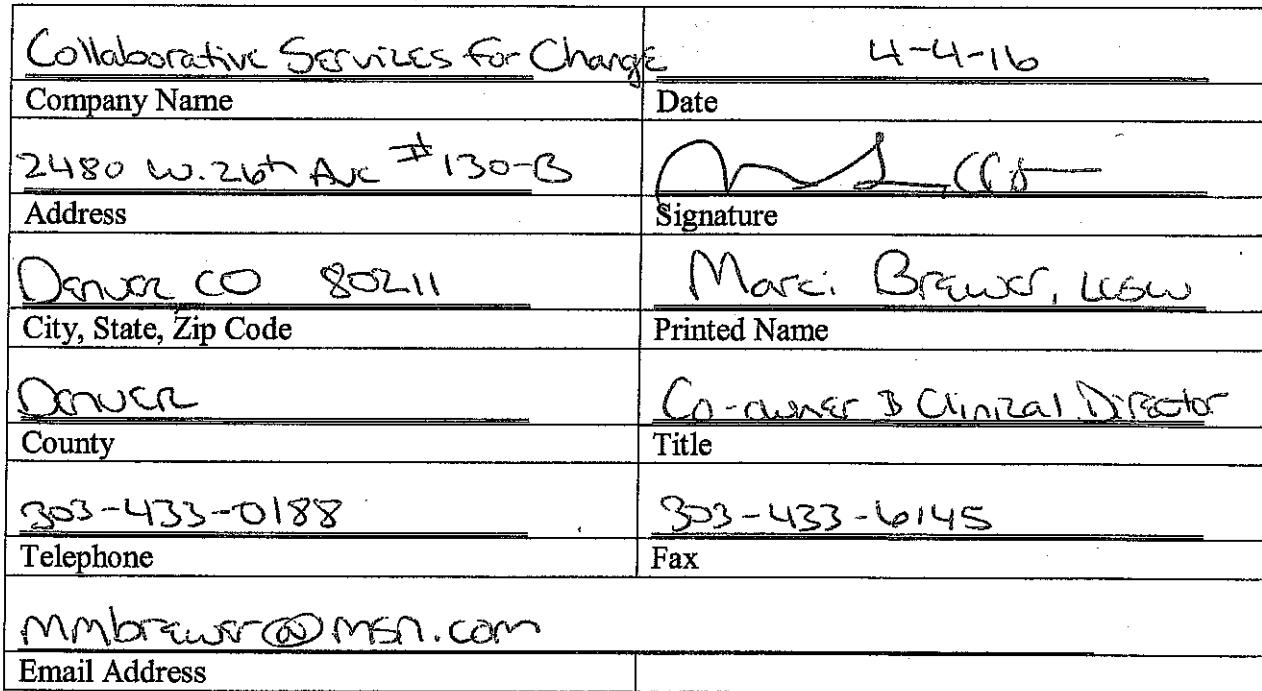 Collaborative Services for Change 4-4-16
Company Name Date
2480 W. 26th Ave #130-B
Address Signature
Denver CO 80211 Marci Brewer, LCSW
City, State, Zip Code Printed Name
Denver Co-owner & Clinical Director
County Title
303-433-0188 303-433-6145
Telephone Fax
mmbrewer@msn.com
Email Address